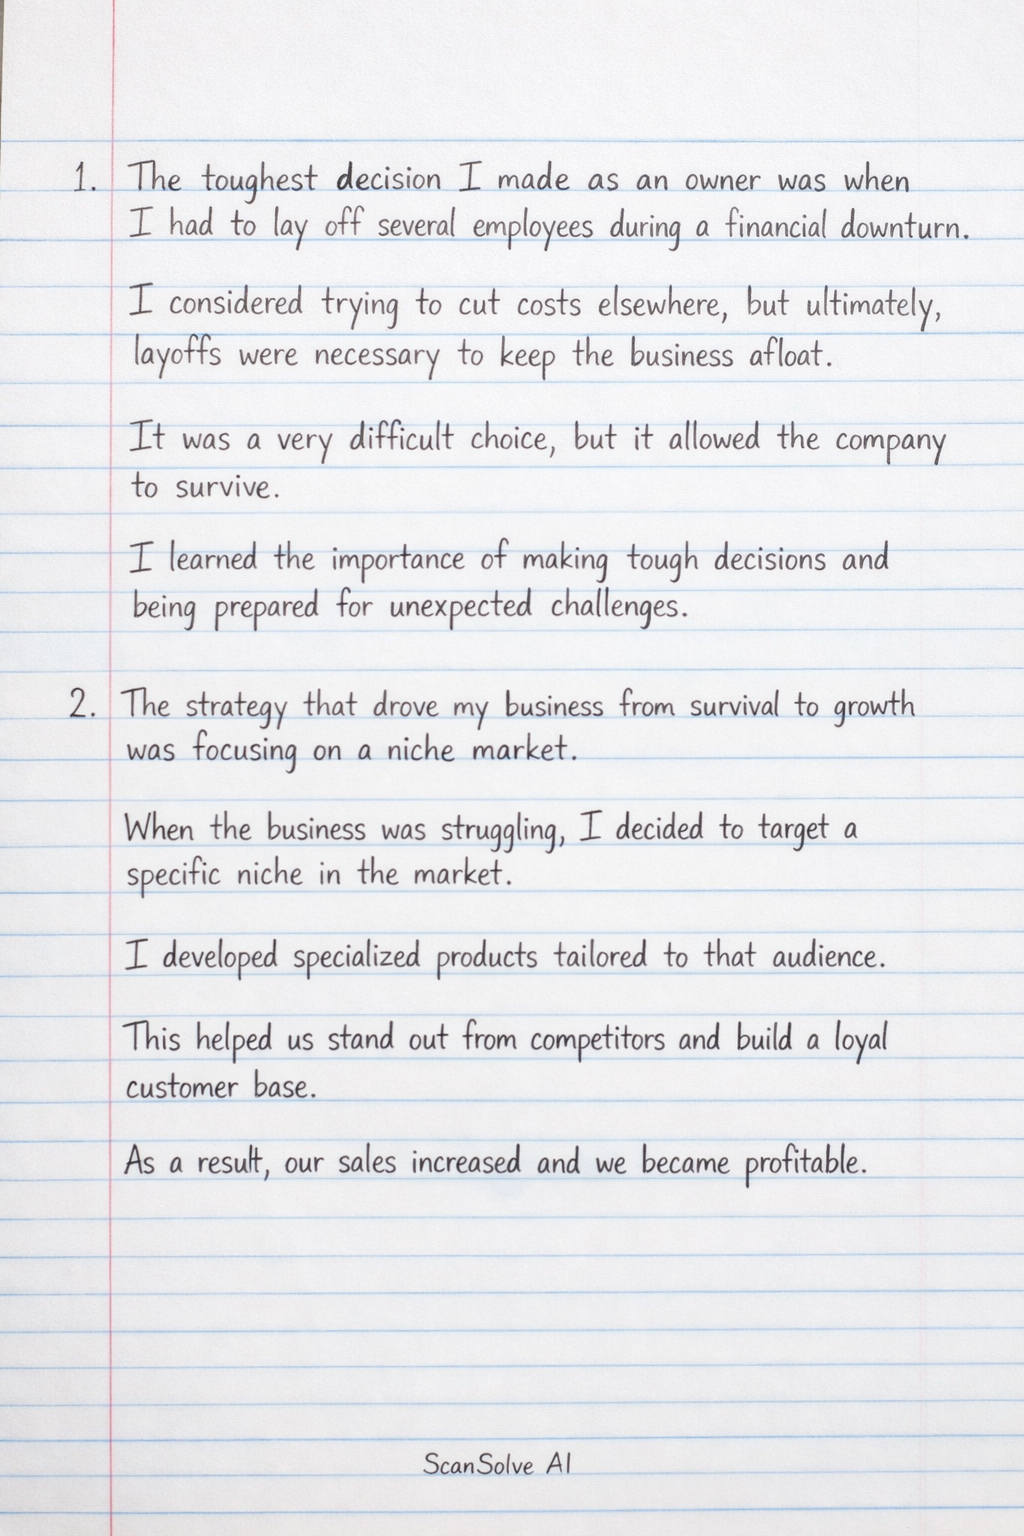 1. The toughest decision I made as an owner was when
I had to lay off several employees during a financial downturn.
I considered trying to cut costs elsewhere, but ultimately,
layoffs were necessary to keep the business afloat.
It was a very difficult choice, but it allowed the company
to survive.
I learned the importance of making tough decisions and
being prepared for unexpected challenges.
2. The strategy that drove my business from survival to growth
was focusing on a niche market.
When the business was struggling, I decided to target a
specific niche in the market.
I developed specialized products tailored to that audience.
This helped us stand out from competitors and build a loyal
customer base.
As a result, our sales increased and we became profitable.
ScanSolve AI